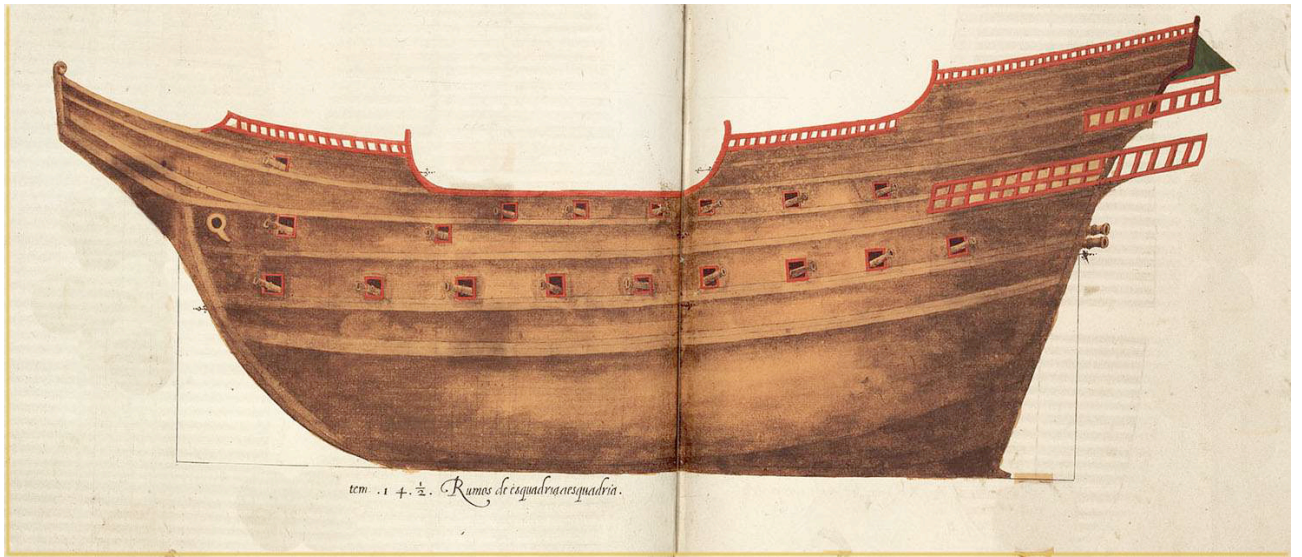 tem .14.½. Rumos de esquadria aesquadria.